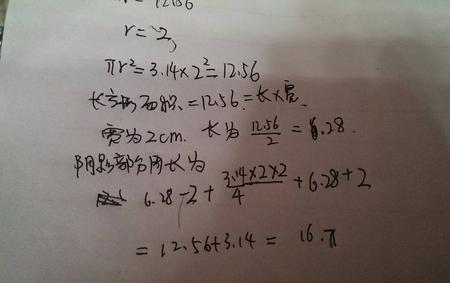 = 12.56
r = 2,
πr² = 3.14×2² = 12.56
长方形面积 = 12.56 = 长×宽.
宽为2cm. 长为 12.56/2 = 6.28.
阴影部分周长为
6.28-2 + 3.14×2×2/4 + 6.28+2
= 12.56+3.14 = 16.π